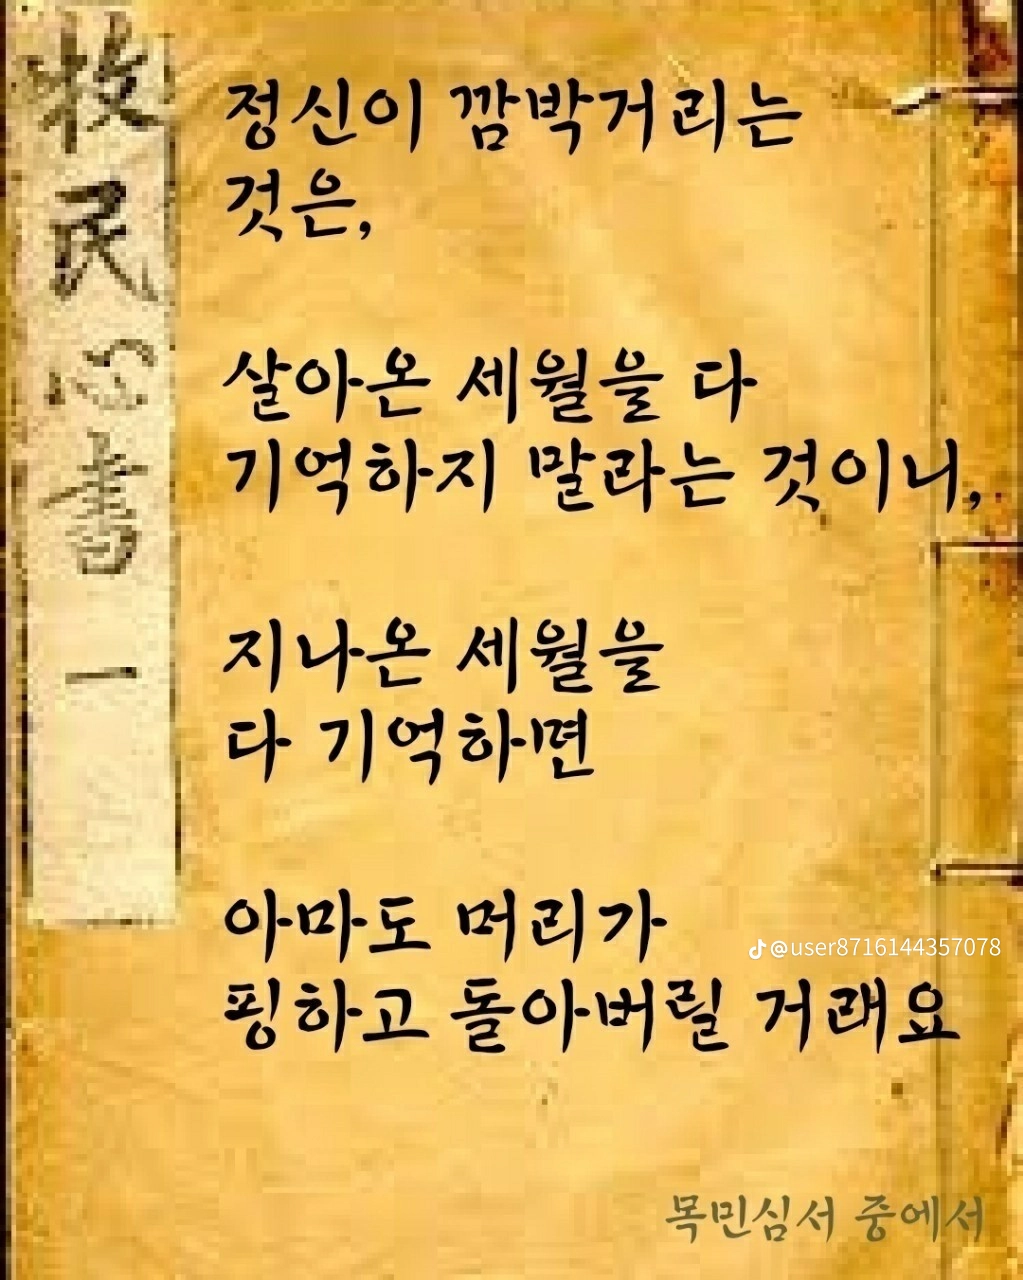 牧民心書 一
정신이 깜박거리는
것은,
살아온 세월을 다
기억하지 말라는 것이니,
지나온 세월을
다 기억하면
아마도 머리가
핑하고 돌아버릴 거래요
@user8716144357078
목민심서 중에서